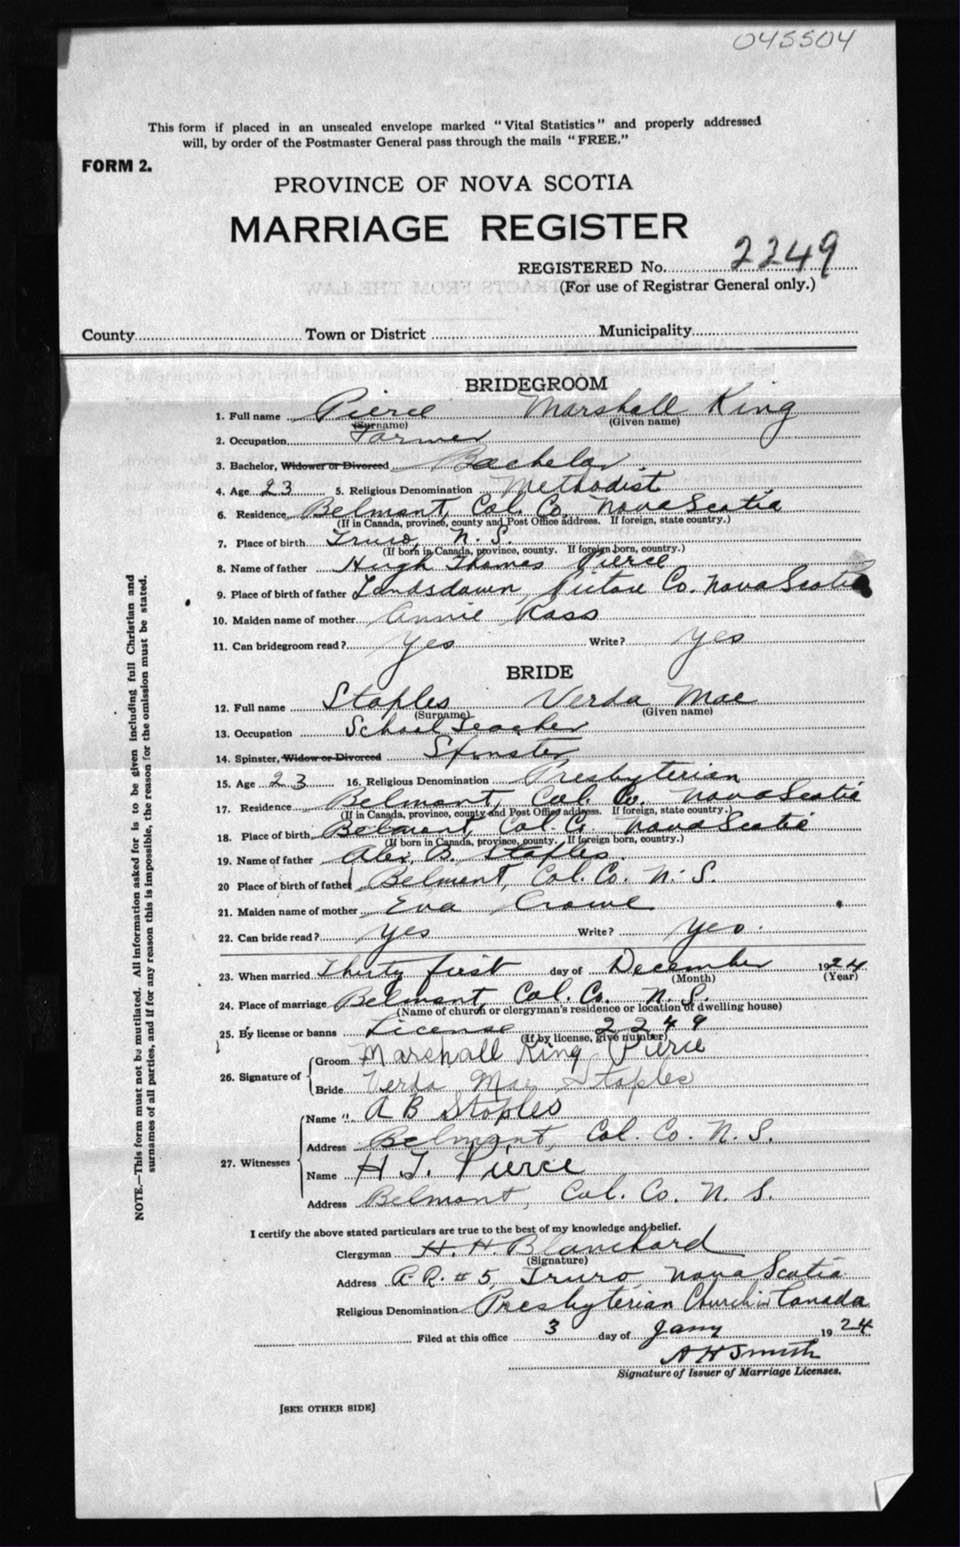 045504
This form if placed in an unsealed envelope marked "Vital Statistics" and properly addressed
will, by order of the Postmaster General pass through the mails "FREE."
FORM 2.
PROVINCE OF NOVA SCOTIA
MARRIAGE REGISTER
REGISTERED No. 2249
(For use of Registrar General only.)
County Town or District Municipality
BRIDEGROOM
1. Full name Pierce Marshall King
(Surname) (Given name)
2. Occupation Farmer
3. Bachelor, Widower or Divorced Bachelor
4. Age 23 5. Religious Denomination Methodist
6. Residence Belmont, Col. Co. Nova Scotia
(If in Canada, province, county and Post Office address. If foreign, state country.)
7. Place of birth Truro, N. S.
(If born in Canada, province, county. If foreign born, country.)
8. Name of father Hugh Thomas Pierce
9. Place of birth of father Landsdawn, Pictou Co. Nova Scotia
10. Maiden name of mother Annie Ross
11. Can bridegroom read? Yes Write? Yes
BRIDE
12. Full name Staples Verda Mae
(Surname) (Given name)
13. Occupation School Teacher
14. Spinster, Widow or Divorced Spinster
15. Age 23 16. Religious Denomination Presbyterian
17. Residence Belmont, Col. Co. Nova Scotia
(If in Canada, province, county and Post Office address. If foreign, state country.)
18. Place of birth Belmont, Col. Co. Nova Scotia
(If born in Canada, province, county. If foreign born, country.)
19. Name of father Alex. B. Staples
20 Place of birth of father Belmont, Col. Co. N. S.
21. Maiden name of mother Eva Crowe
22. Can bride read? Yes Write? Yes.
23. When married Thirty first day of December 1924
(Month) (Year)
24. Place of marriage Belmont, Col. Co. N. S.
(Name of church or clergyman's residence or location of dwelling house)
25. By license or banns License 2249
(If by license, give number)
26. Signature of Groom Marshall King Pierce
Bride Verda Mae Staples
27. Witnesses Name A B Staples
Address Belmont, Col. Co. N. S.
Name H T. Pierce
Address Belmont, Col. Co. N. S.
I certify the above stated particulars are true to the best of my knowledge and belief.
Clergyman H. H. Blanchard
(Signature)
Address R. R. # 5, Truro, Nova Scotia
Religious Denomination Presbyterian Church in Canada
Filed at this office 3 day of Jany 1924
A H Smith
Signature of Issuer of Marriage Licenses.
[SEE OTHER SIDE]
NOTE.—This form must not be mutilated. All information asked for is to be given including full Christian and
surnames of all parties, and if for any reason this is impossible, the reason for the omission must be stated.